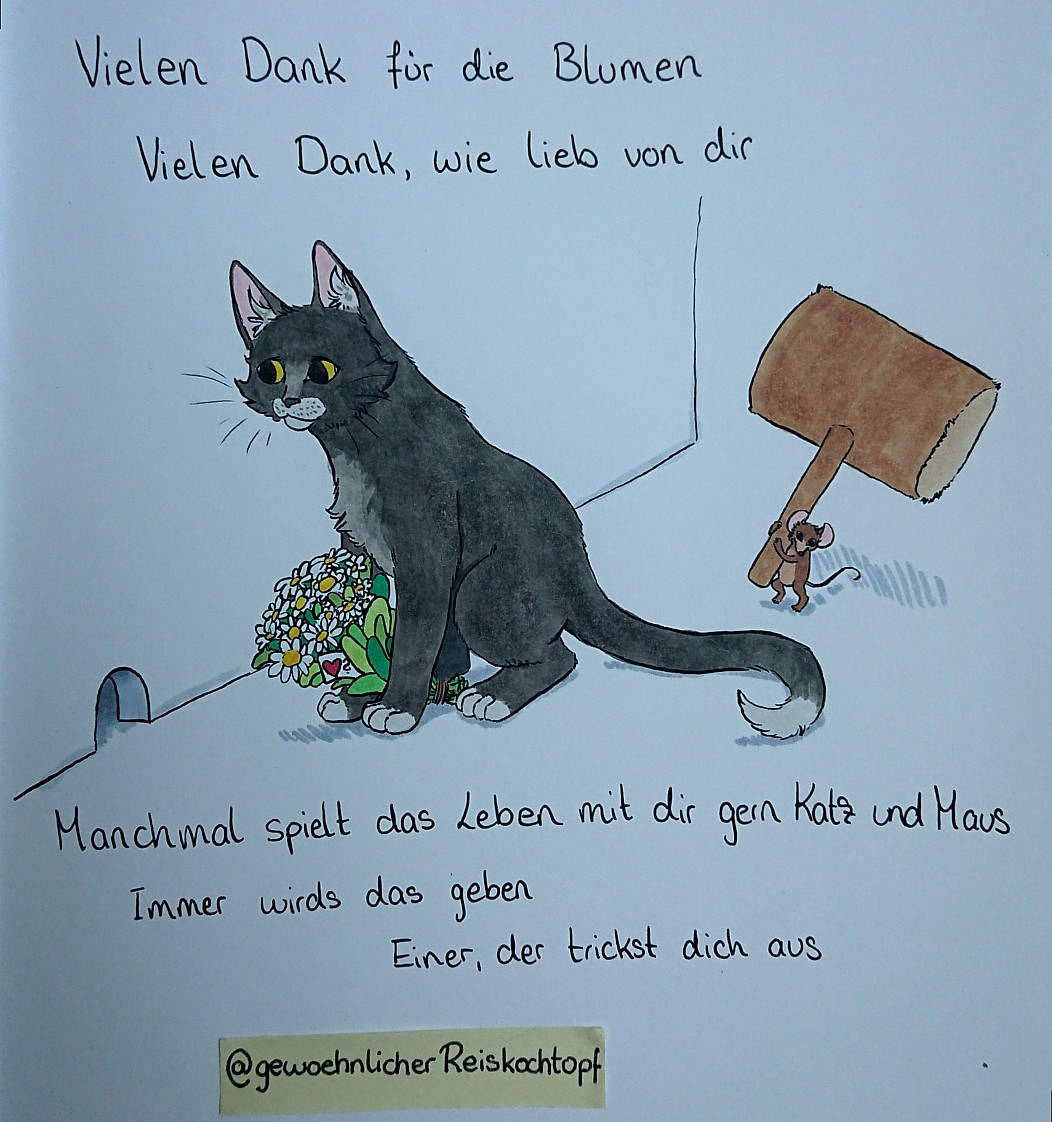 Vielen Dank für die Blumen
Vielen Dank, wie lieb von dir
Manchmal spielt das Leben mit dir gern Katz und Maus
Immer wirds das geben
Einer, der trickst dich aus
@gewoehnlicherReiskochtopf